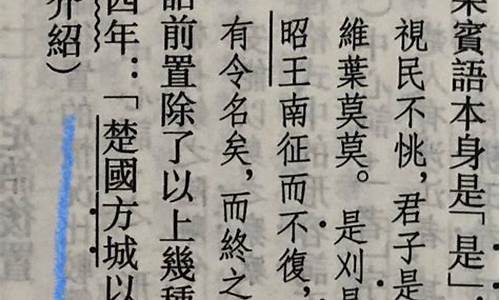 果賓語本身是「是」，
視民不恌，君子是
維葉莫莫。是刈是
昭王南征而不復，
有令名矣，而終之
語前置除了以上幾種
四年：「楚國方城以
介紹）